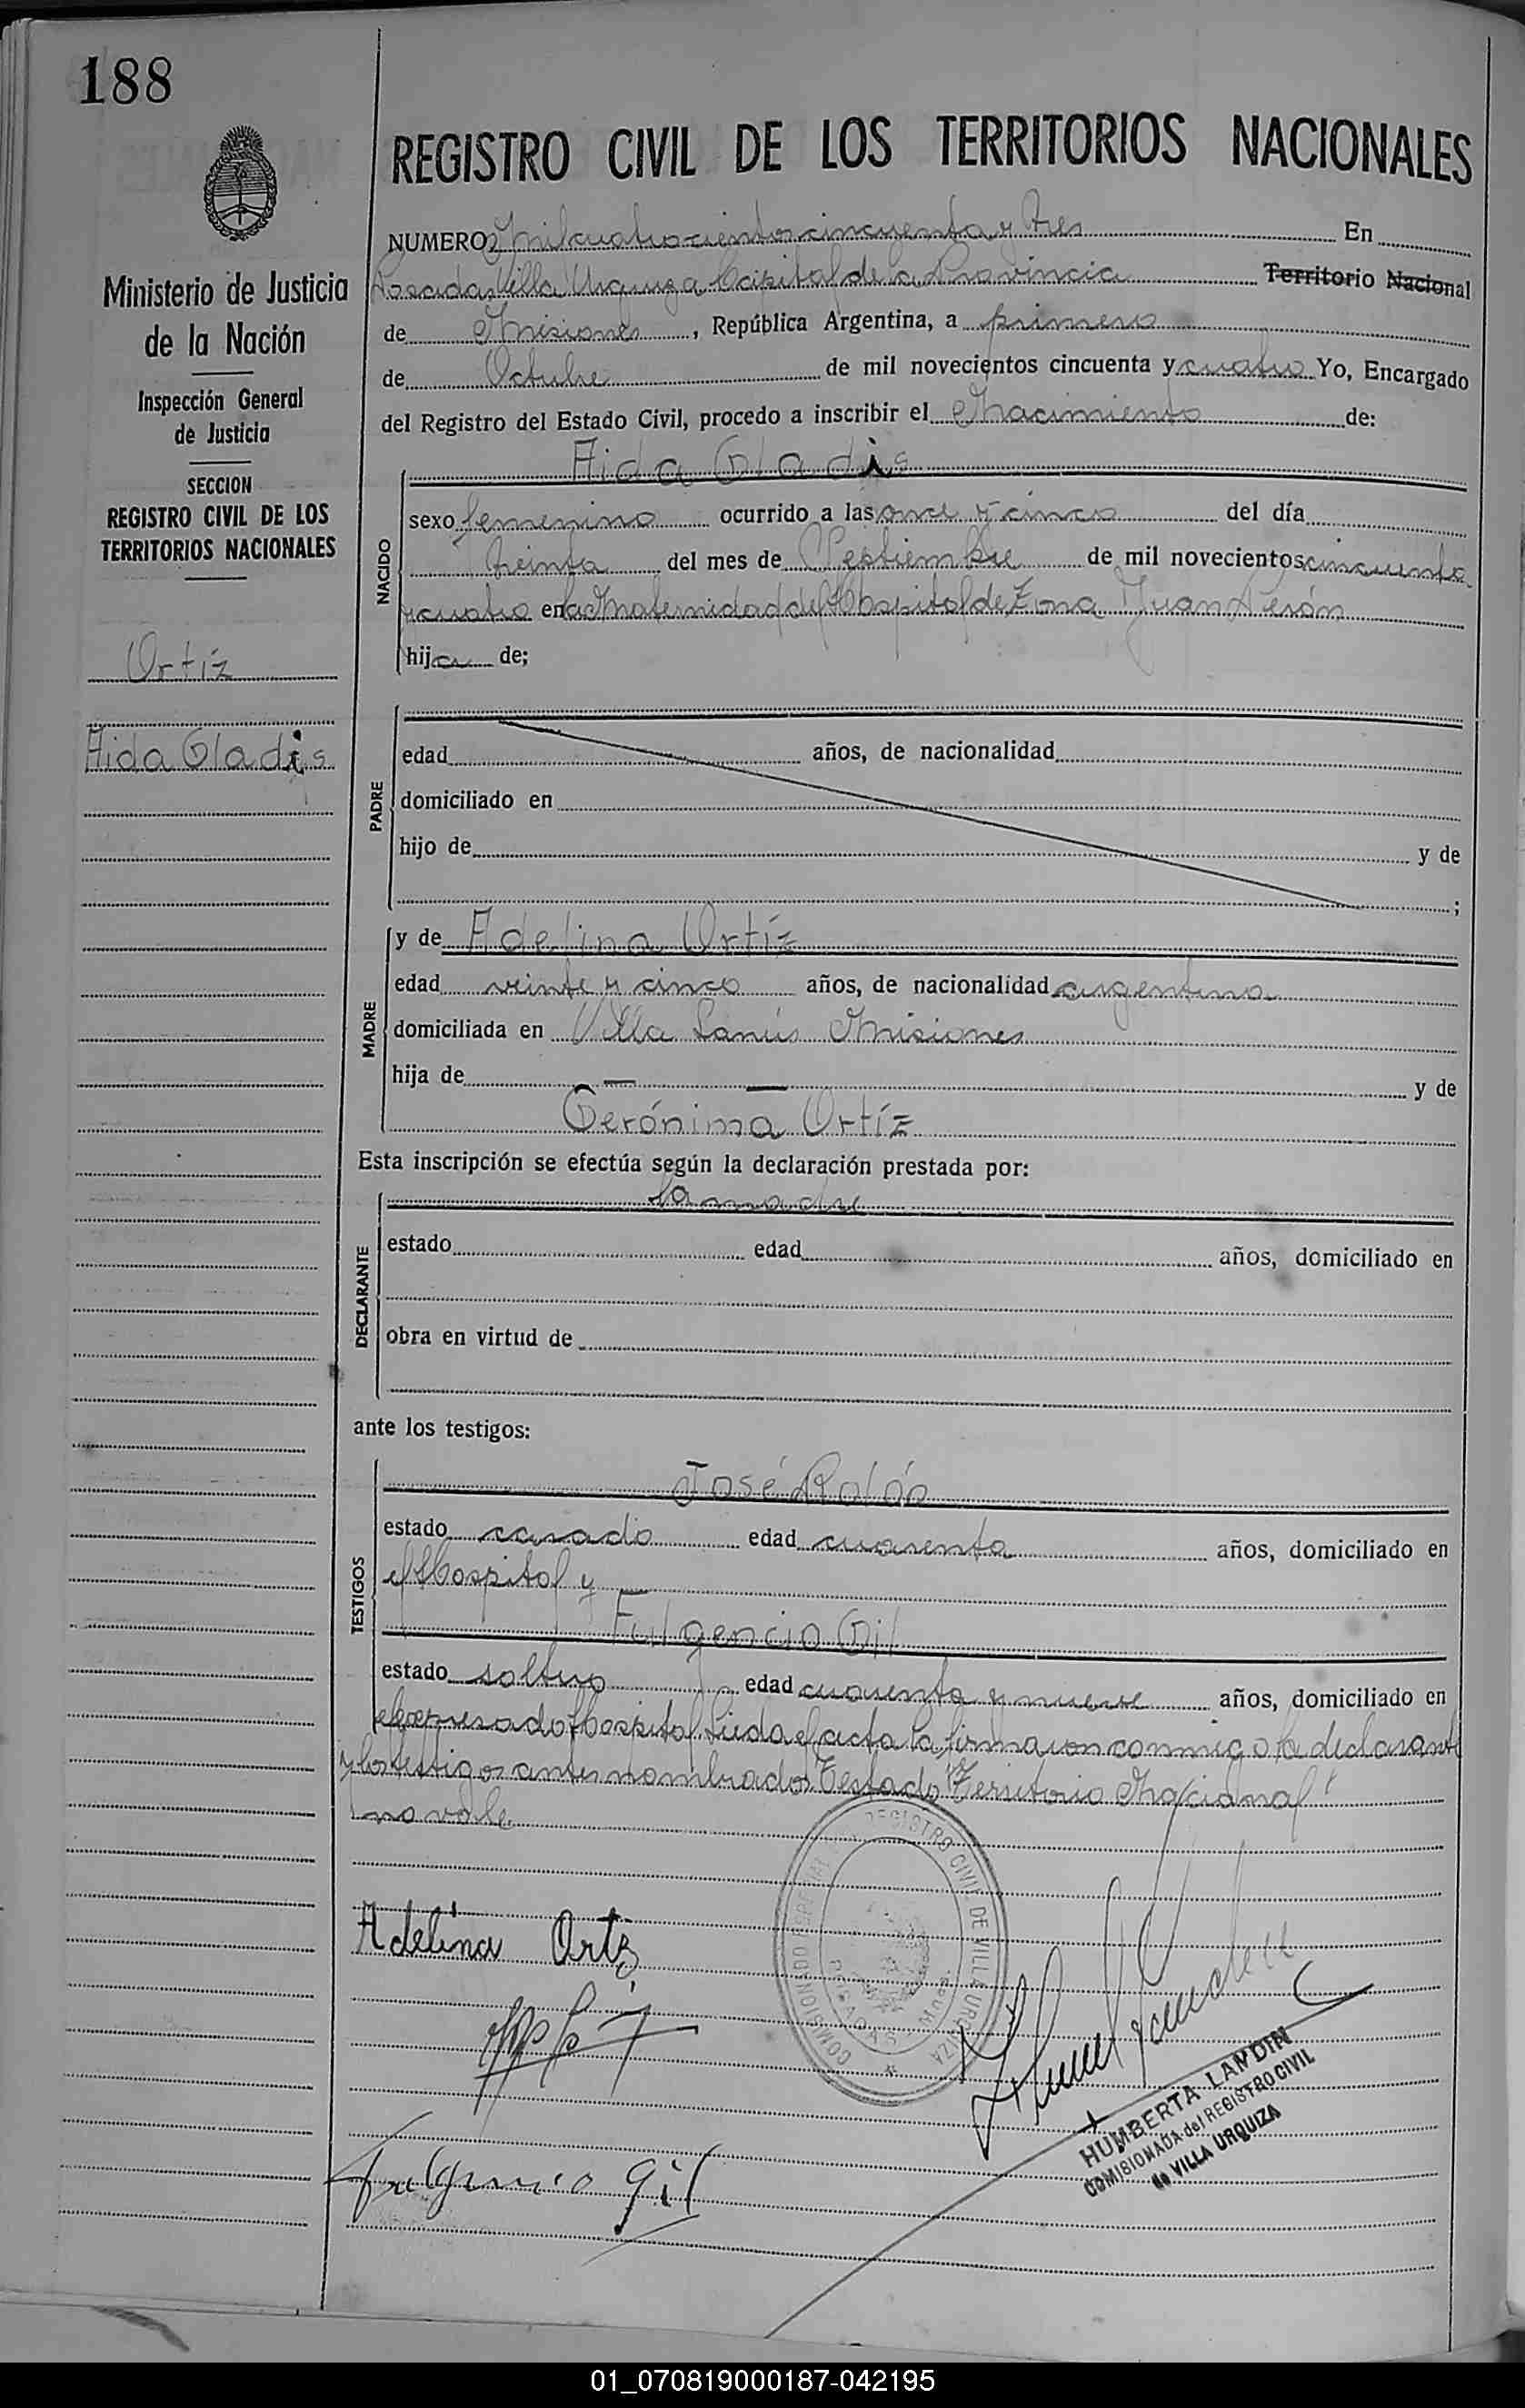 188
REGISTRO CIVIL DE LOS TERRITORIOS NACIONALES
NUMERO Mil cuatrocientos cincuenta y tres En
Posadas Villa Urquiza Capital de la Provincia Territorio Nacional
de Misiones, República Argentina, a primero
de Octubre de mil novecientos cincuenta y cuatro Yo, Encargado
del Registro del Estado Civil, procedo a inscribir el Nacimiento de:
Ministerio de Justicia
de la Nación
Inspección General
de Justicia
SECCION
REGISTRO CIVIL DE LOS
TERRITORIOS NACIONALES
Ortíz
Aida Gladis
NACIDO
Aida Gladis
sexo femenino ocurrido a las once y cinco del día
treinta del mes de Septiembre de mil novecientos cincuenta
y cuatro en la Maternidad del Hospital de Zona Juan Perón
hija de;
PADRE
edad años, de nacionalidad
domiciliado en
hijo de y de
;
MADRE
y de Adelina Ortíz
edad veinte y cinco años, de nacionalidad argentina
domiciliada en Villa Lanús Misiones
hija de — — y de
Gerónima Ortíz
Esta inscripción se efectúa según la declaración prestada por:
DECLARANTE
la madre
estado edad años, domiciliado en
obra en virtud de
ante los testigos:
TESTIGOS
José Rolón
estado casado edad cuarenta años, domiciliado en
el Hospital y —
Fulgencio Gil
estado soltero edad cuarenta y nueve años, domiciliado en
el expresado Hospital. Leida el acta la firmaron conmigo la declarante
y los testigos antes nombrados Testado "Territorio Nacional"
no vale.
REGISTRO CIVIL DE VILLA URQUIZA
POSADAS
Adelina Ortiz
Fulgencio Gil
HUMBERTA LANDIN
COMISIONADA del REGISTRO CIVIL
de VILLA URQUIZA
01_070819000187-042195